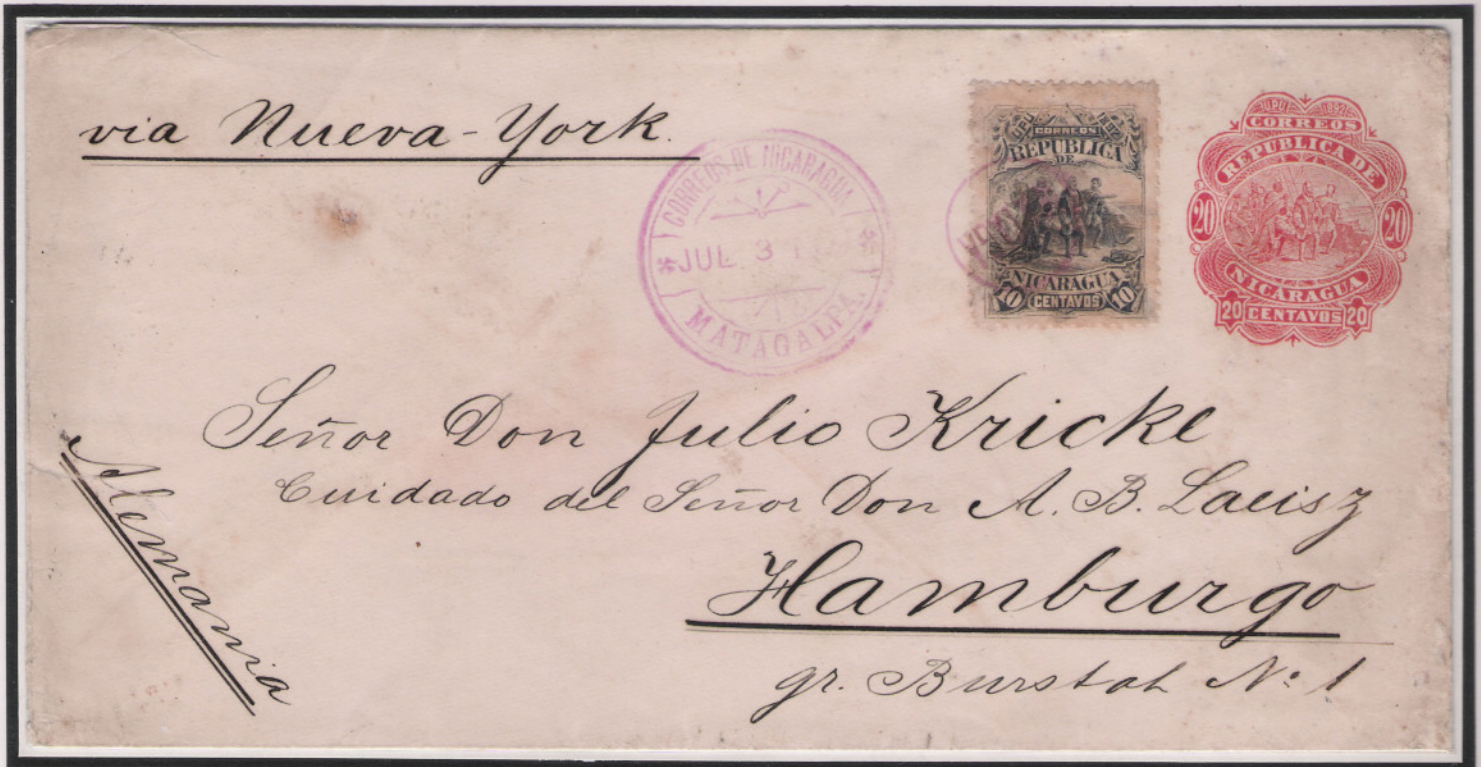 via Nueva-York.
CORREOS DE NICARAGUA
JUL 31
MATAGALPA
UPU 1892
CORREOS
REPUBLICA
DE
NICARAGUA
10 CENTAVOS 10
UPU 1892
CORREOS
REPUBLICA DE
20 20
NICARAGUA
20 CENTAVOS 20
Señor Don Julio Kricke
Cuidado del Señor Don A. B. Laeisz
Hamburgo
gr. Burstah No 1
Alemania